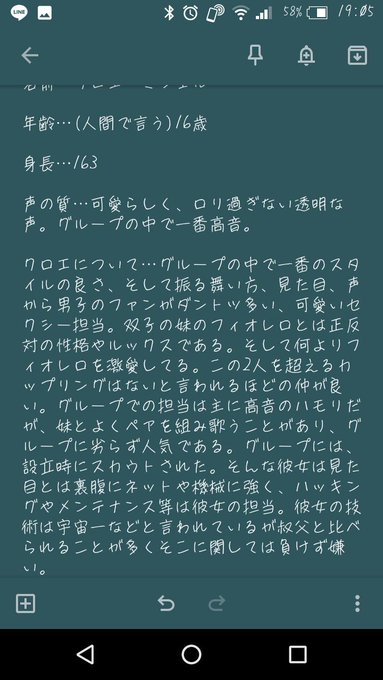 LINE
58%
19:05
年齢…(人間で言う)16歳
身長…163
声の質…可愛らしく、ロリ過ぎない透明な
声。グループの中で一番高音。
クロエについて…グループの中で一番のスタ
イルの良さ、そして振る舞い方、見た目、声
から男子のファンがダントツ多い、可愛いセ
クシー担当。双子の妹のフィオレロとは正反
対の性格やルックスである。そして何よりフ
ィオレロを激愛してる。この2人を超えるカ
ップリングはないと言われるほどの仲が良
い。グループでの担当は主に高音のハモリだ
が、妹とよくペアを組み歌うことがあり、グ
ループに劣らず人気である。グループには、
設立時にスカウトされた。そんな彼女は見た
目とは裏腹にネットや機械に強く、ハッキン
グやメンテナンス等は彼女の担当。彼女の技
術は宇宙一などと言われているが叔父と比べ
られることが多くそこに関しては負けず嫌
い。